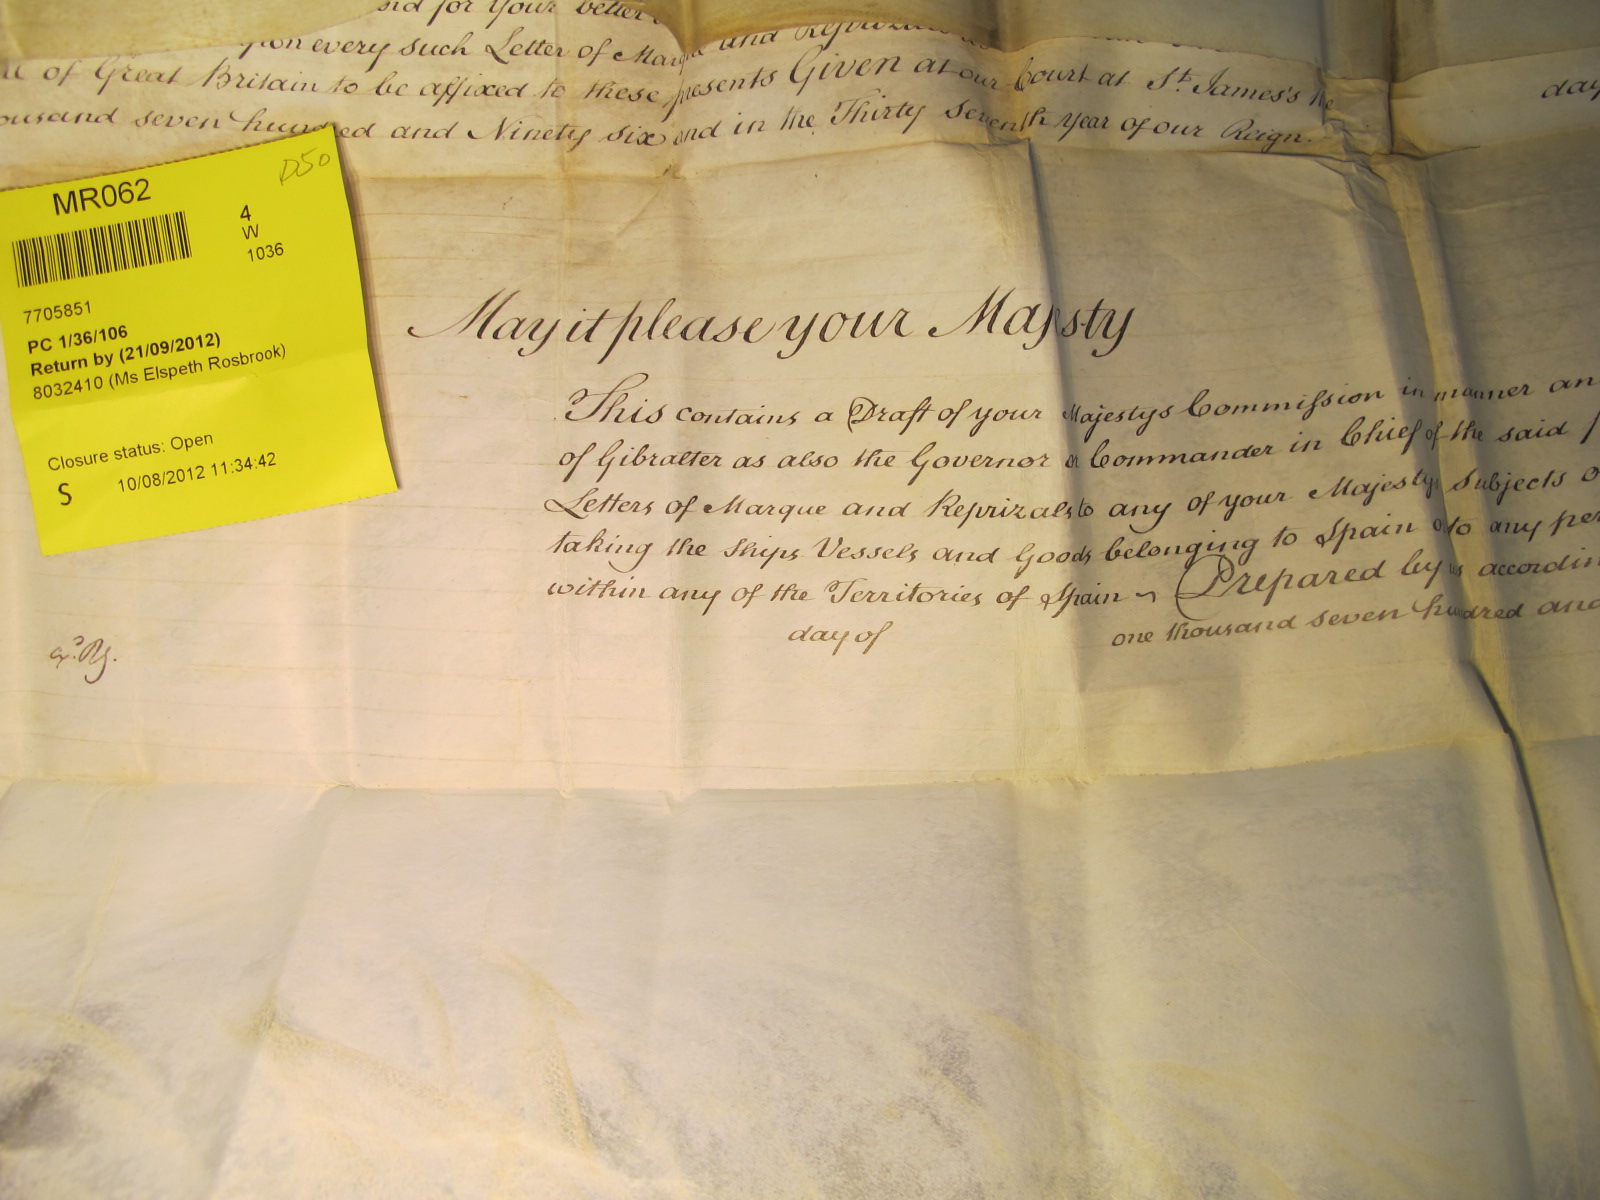 for Your better
upon every such Letter of Marque and
of Great Britain to be affixed to these presents Given at our Court at St. James's the day
thousand seven hundred and Ninety six and in the Thirty Seventh Year of our Reign.
D50
MR062
4
W
1036
7705851
PC 1/36/106
Return by (21/09/2012)
8032410 (Ms Elspeth Rosbrook)
Closure status: Open
S 10/08/2012 11:34:42
May it please your Majesty
This contains a Draft of your Majestys Commission in manner an
of Gibralter as also the Governor or Commander in Chief of the said
Letters of Marque and Reprizals to any of your Majestys Subjects o
taking the Ships Vessels and Goods belonging to Spain or to any per
within any of the Territories of Spain ~ Prepared by us accordin
day of one thousand seven hundred and